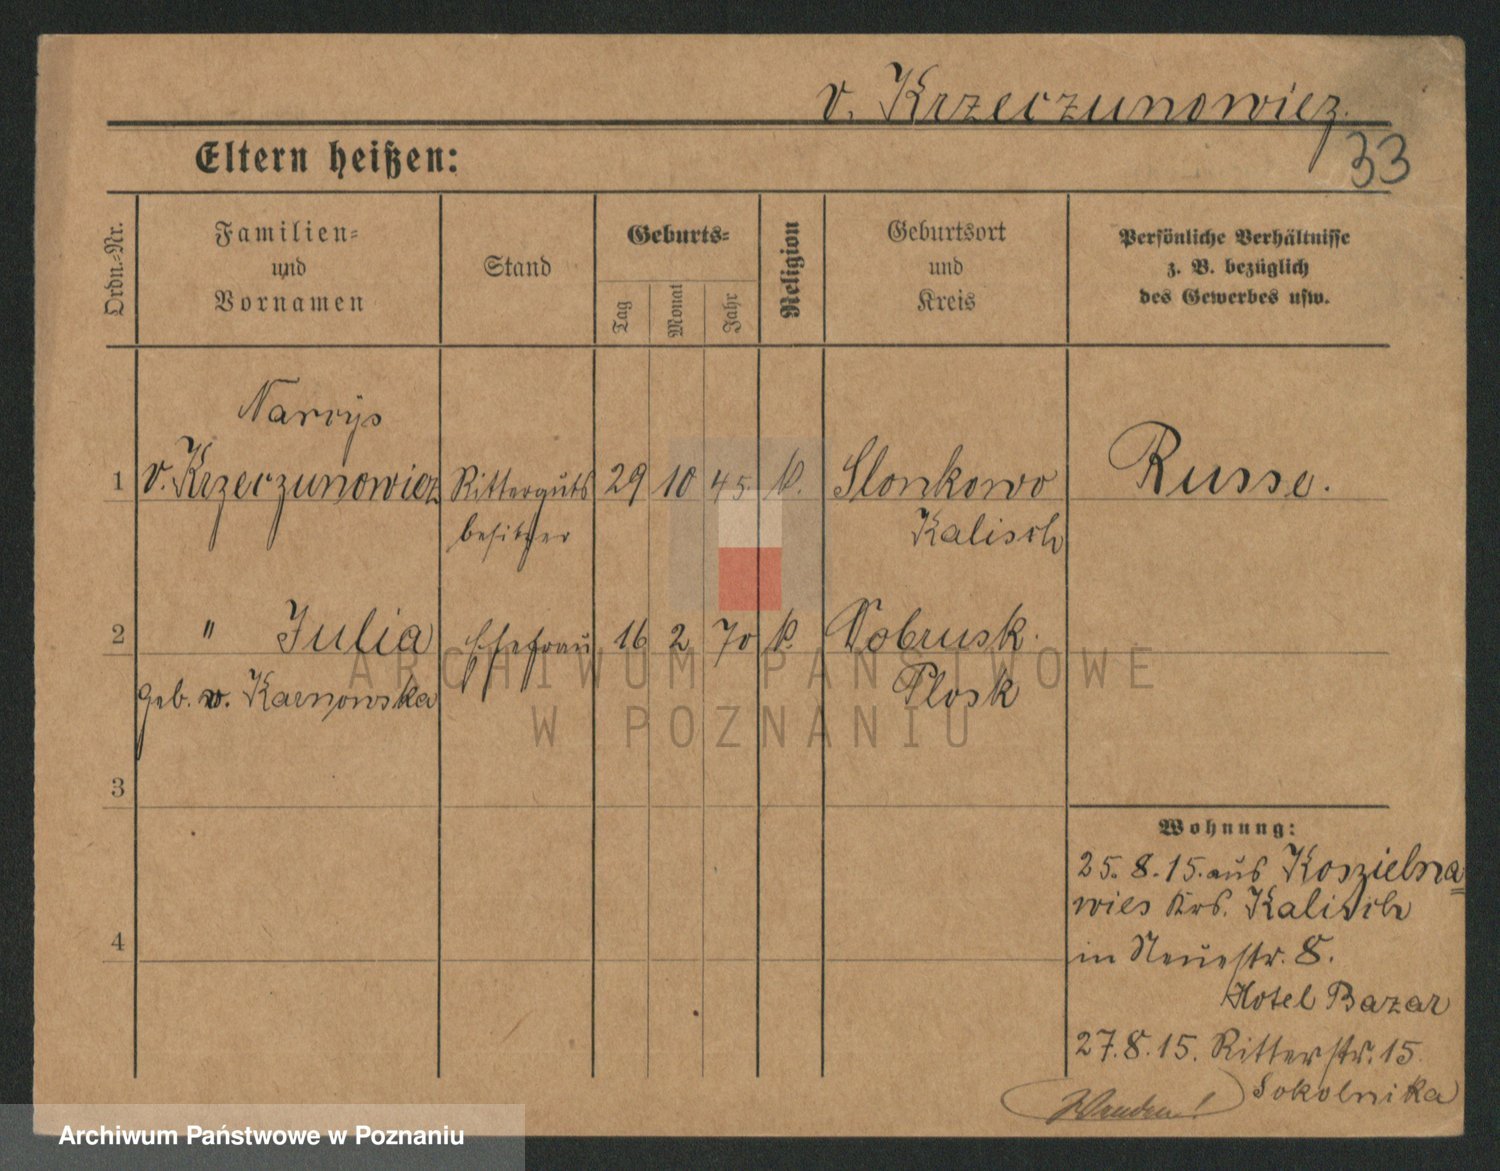 v. Krzeczunowicz.
33
Eltern heißen:
Ordn.-Nr.
Familien-
und
Vornamen
Stand
Geburts-
Tag
Monat
Jahr
Religion
Geburtsort
und
Kreis
Persönliche Verhältnisse
z. B. bezüglich
des Gewerbes usw.
Narcys
1 v. Krzeczunowicz Ritterguts 29 10 45. k. Slonkowo Russe.
besitzer Kalisch
2 " Julia Ehefrau 16 2 70 k. Dobrusk.
geb. v. Karnowska Plosk
3
Wohnung:
25. 8. 15. aus Koszielna
wies Krs. Kalisch
4
in Neuestr. 8.
Hotel Bazar
27. 8. 15. Ritterstr. 15
Sokolnika
ARCHIWUM PAŃSTWOWE
W POZNANIU
Archiwum Państwowe w Poznaniu